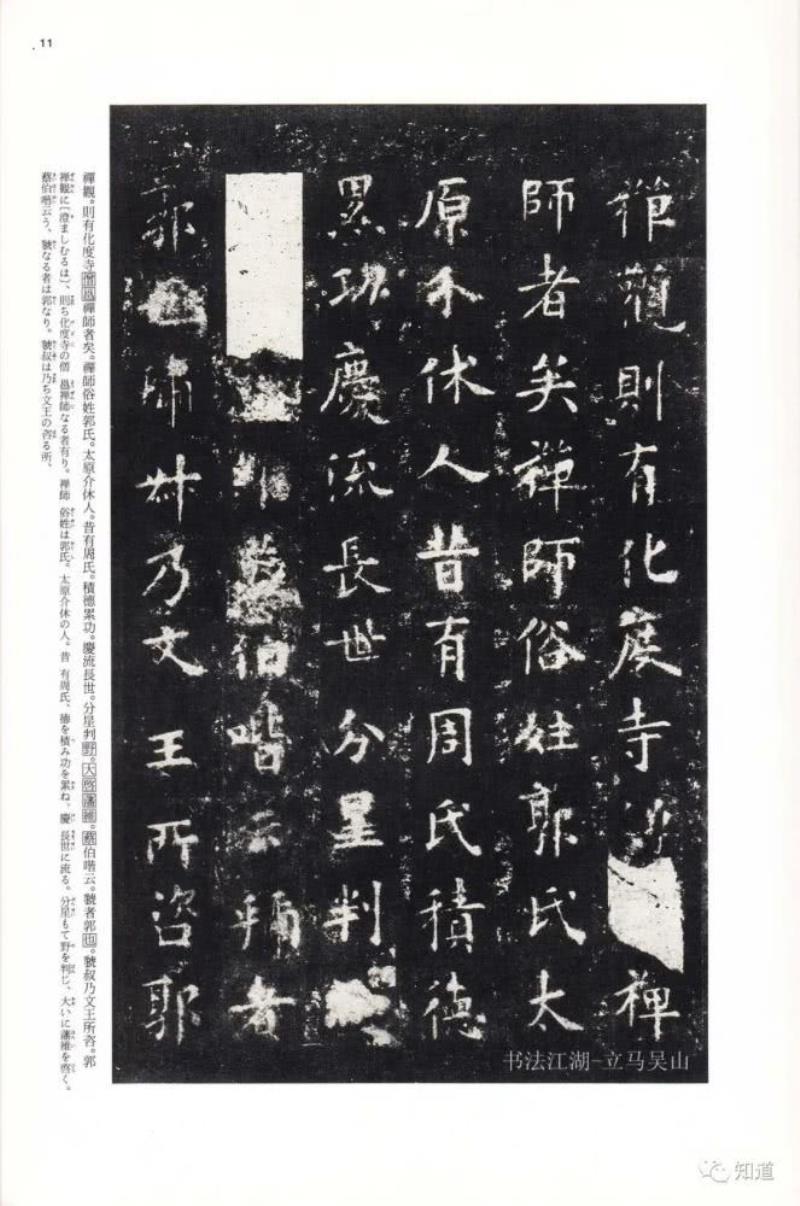 11
禅觀則有化度寺僧禅
師者矣禅師俗姓郭氏太
原介休人昔有周氏積德
累功慶流長世分星判
蔡伯喈云虢者
郭也虢叔乃文王所咨郭
禪觀。則有化度寺僧邕禪師者矣。禪師俗姓郭氏。太原介休人。昔有周氏。積德累功。慶流長世。分星判野。大啓藩維。蔡伯喈云。虢者郭也。虢叔乃文王所咨。郭
禅觀に(澄ましむるは)、則ち化度寺の僧 邕禅師なる者有り。禅師 俗姓は郭氏。太原介休の人。昔 有周氏、徳を積み功を累ね、慶 長世に流る。分星もて野を判じ、大いに藩維を啓く。
蔡伯喈云う、虢なる者は郭なり。虢叔は乃ち文王の咨る所、
书法江湖-立马吴山
知道